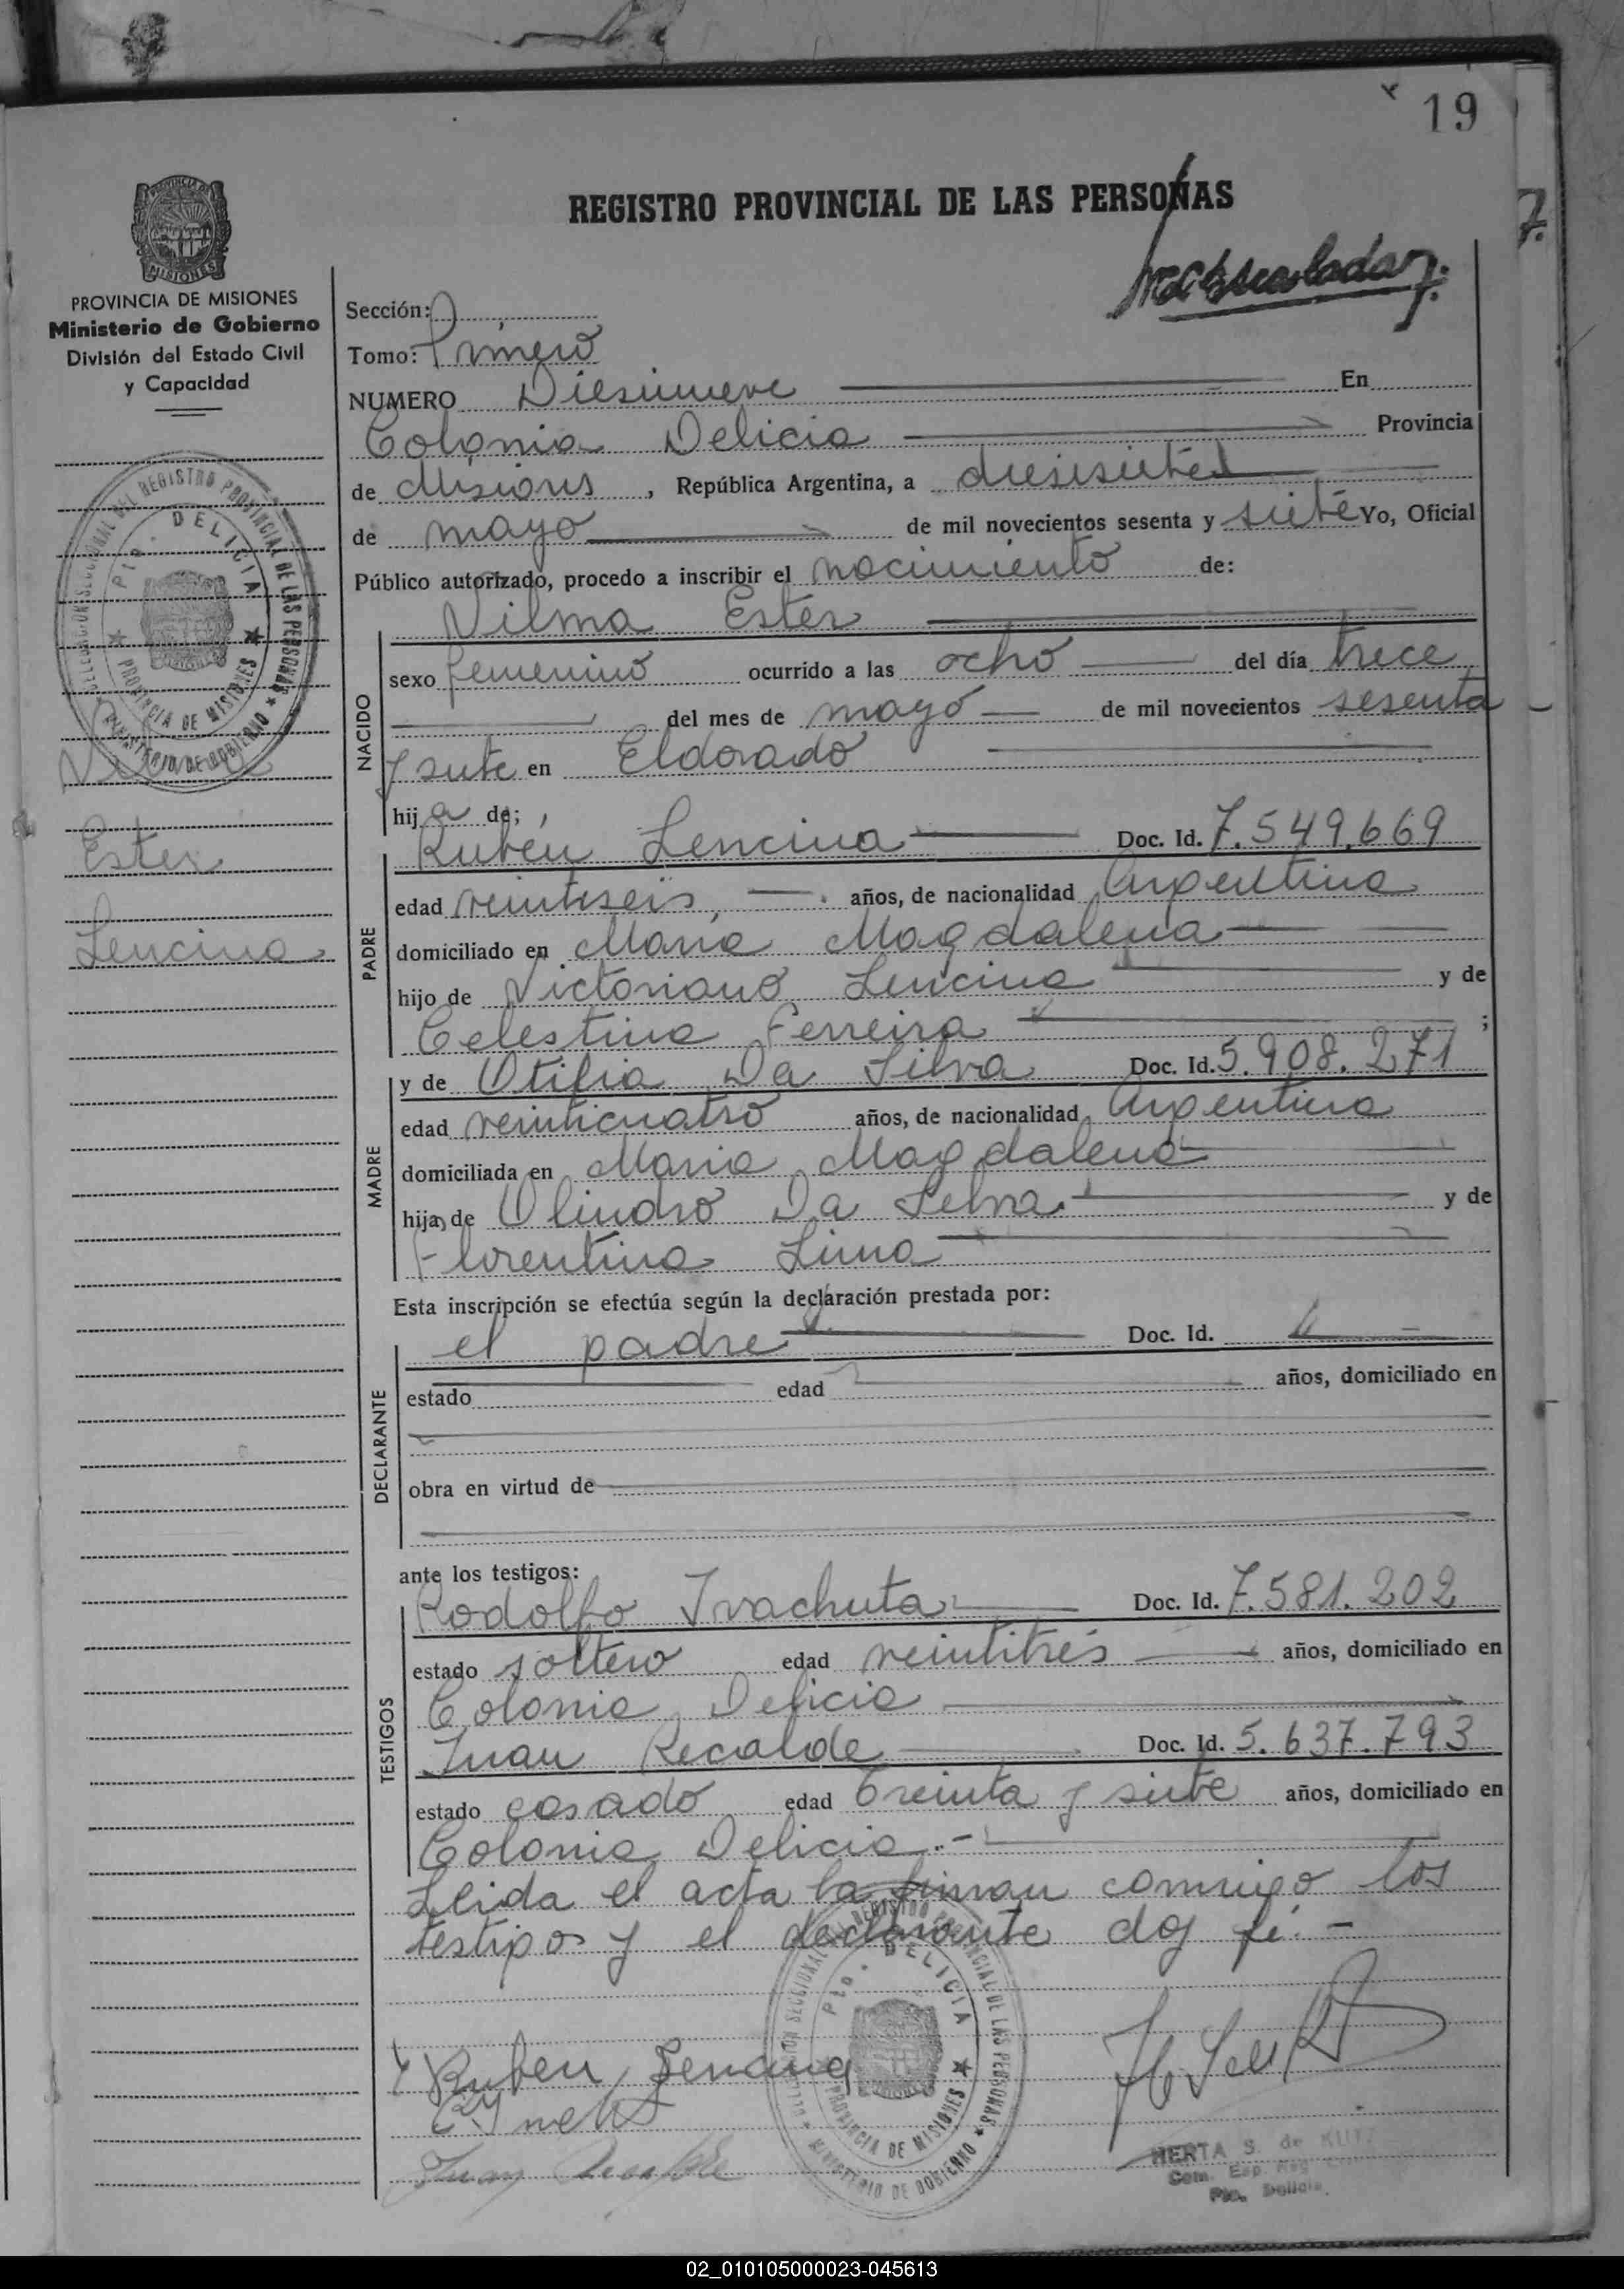 19
REGISTRO PROVINCIAL DE LAS PERSONAS
7.
PROVINCIA DE MISIONES
Ministerio de Gobierno
División del Estado Civil
y Capacidad
Sección:
Tomo: Primero
NUMERO Diesinueve En
Colonia Delicia Provincia
de Misiones, República Argentina, a diesisiete
de mayo de mil novecientos sesenta y siete Yo, Oficial
Público autorizado, procedo a inscribir el nacimiento de:
Vilma Ester
NACIDO
sexo femenino ocurrido a las ocho del día trece
del mes de mayo de mil novecientos sesenta
y siete en Eldorado
hija de;
Rubén Lencina Doc. Id. 7.549.669
PADRE
edad veintiseis años, de nacionalidad Argentina
domiciliado en Maria Magdalena
hijo de Victoriano Lencina y de
Celestina Ferreira ;
y de Otilia Da Silva Doc. Id. 5.908.271
MADRE
edad veinticuatro años, de nacionalidad Argentina
domiciliada en Maria Magdalena
hija de Olindro Da Selva y de
Florentina Lima
Esta inscripción se efectúa según la declaración prestada por:
el padre Doc. Id.
DECLARANTE
estado edad años, domiciliado en
obra en virtud de
ante los testigos:
Rodolfo Ivachuta Doc. Id. 7.581.202
TESTIGOS
estado soltero edad veintitrés años, domiciliado en
Colonia Delicia
Juan Recalde Doc. Id. 5.637.793
estado casado edad Treinta y siete años, domiciliado en
Colonia Delicia.-
Leida el acta la firman conmigo los
testigos y el declarante doy fé.-
Ruben Lencina
Juan Recalde
HERTA S. de
Pto. Delicia.
DELEGACION SECCIONAL DEL REGISTRO PROVINCIAL DE LAS PERSONAS
MINISTERIO DE GOBIERNO
Pto. DELICIA
PROVINCIA DE MISIONES
Ester
Lencina
DELEGACION SECCIONAL DEL REGISTRO PROVINCIAL DE LAS PERSONAS
MINISTERIO DE GOBIERNO
Pto. DELICIA
PROVINCIA DE MISIONES
02_010105000023-045613